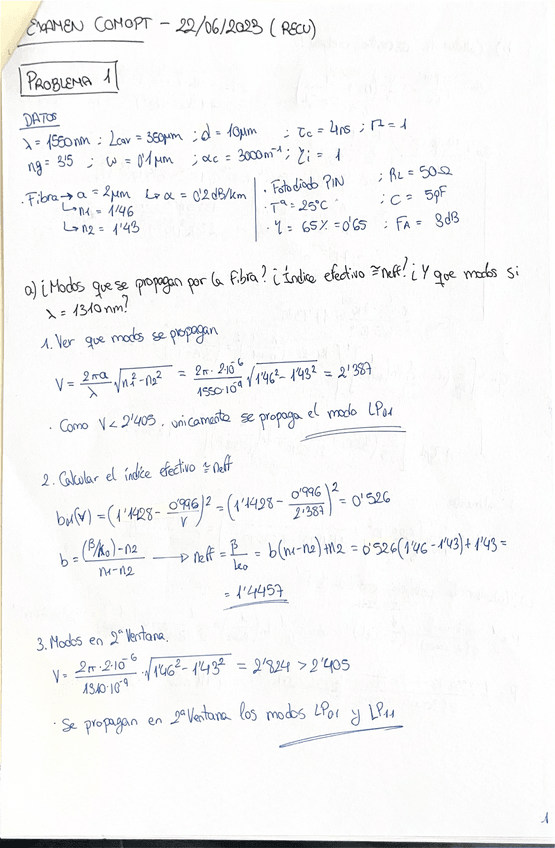 EXAMEN COMOPT - 22/06/2023 (RECU)
PROBLEMA 1
DATOS
λ = 1550nm ; Lcav = 350μm ; d = 10μm ; τc = 4ns ; Γ = 1
ng = 3'5 ; w = 0'1μm ; αc = 3000m⁻¹ ; ηi = 1
· Fibra → a = 2μm ↳ α = 0'2 dB/km
↳ n1 = 1'46
↳ n2 = 1'43
· Fotodiodo PIN ; RL = 50Ω
· Tª = 25°C ; C = 5pF
· η = 65% = 0'65 ; FA = 3dB
a) ¿Modos que se propagan por la Fibra? ¿Índice efectivo ≅ neff? ¿Y que modos si
λ = 1310nm?
1. Ver que modos se propagan
V = 2πa/λ √(n1² - n2²) = 2π · 2·10⁻⁶/1550·10⁻⁹ √(1'46² - 1'43²) = 2'387
· Como V < 2'405, unicamente se propaga el modo LP01
2. Calcular el índice efectivo ≅ neff
b01(V) = (1'1428 - 0'996/V)² = (1'1428 - 0'996/2'387)² = 0'526
b = (β/k0) - n2/n1 - n2 → neff = β/k0 = b(n1 - n2) + n2 = 0'526(1'46 - 1'43) + 1'43 =
= 1'4457
3. Modos en 2ª Ventana.
V = 2π · 2·10⁻⁶/1310·10⁻⁹ · √(1'46² - 1'43²) = 2'824 > 2'405
· Se propagan en 2ª Ventana los modos LP01 y LP11
1